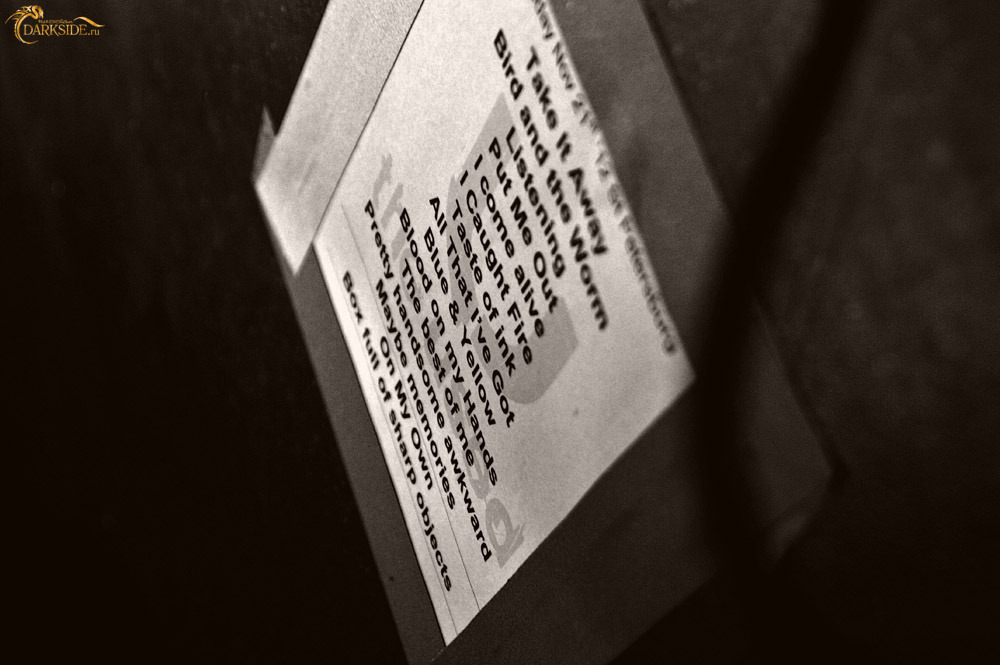 DARKSIDE.ru
Nov 21st '12 St Petersburg
Take It Away
Bird and the Worm
Listening
Put Me Out
I come alive
I Caught Fire
Taste of ink
All That I've Got
Blue & Yellow
Blood on my Hands
The best of me
Pretty handsome awkward
Maybe memories
On My Own
Box full of sharp objects